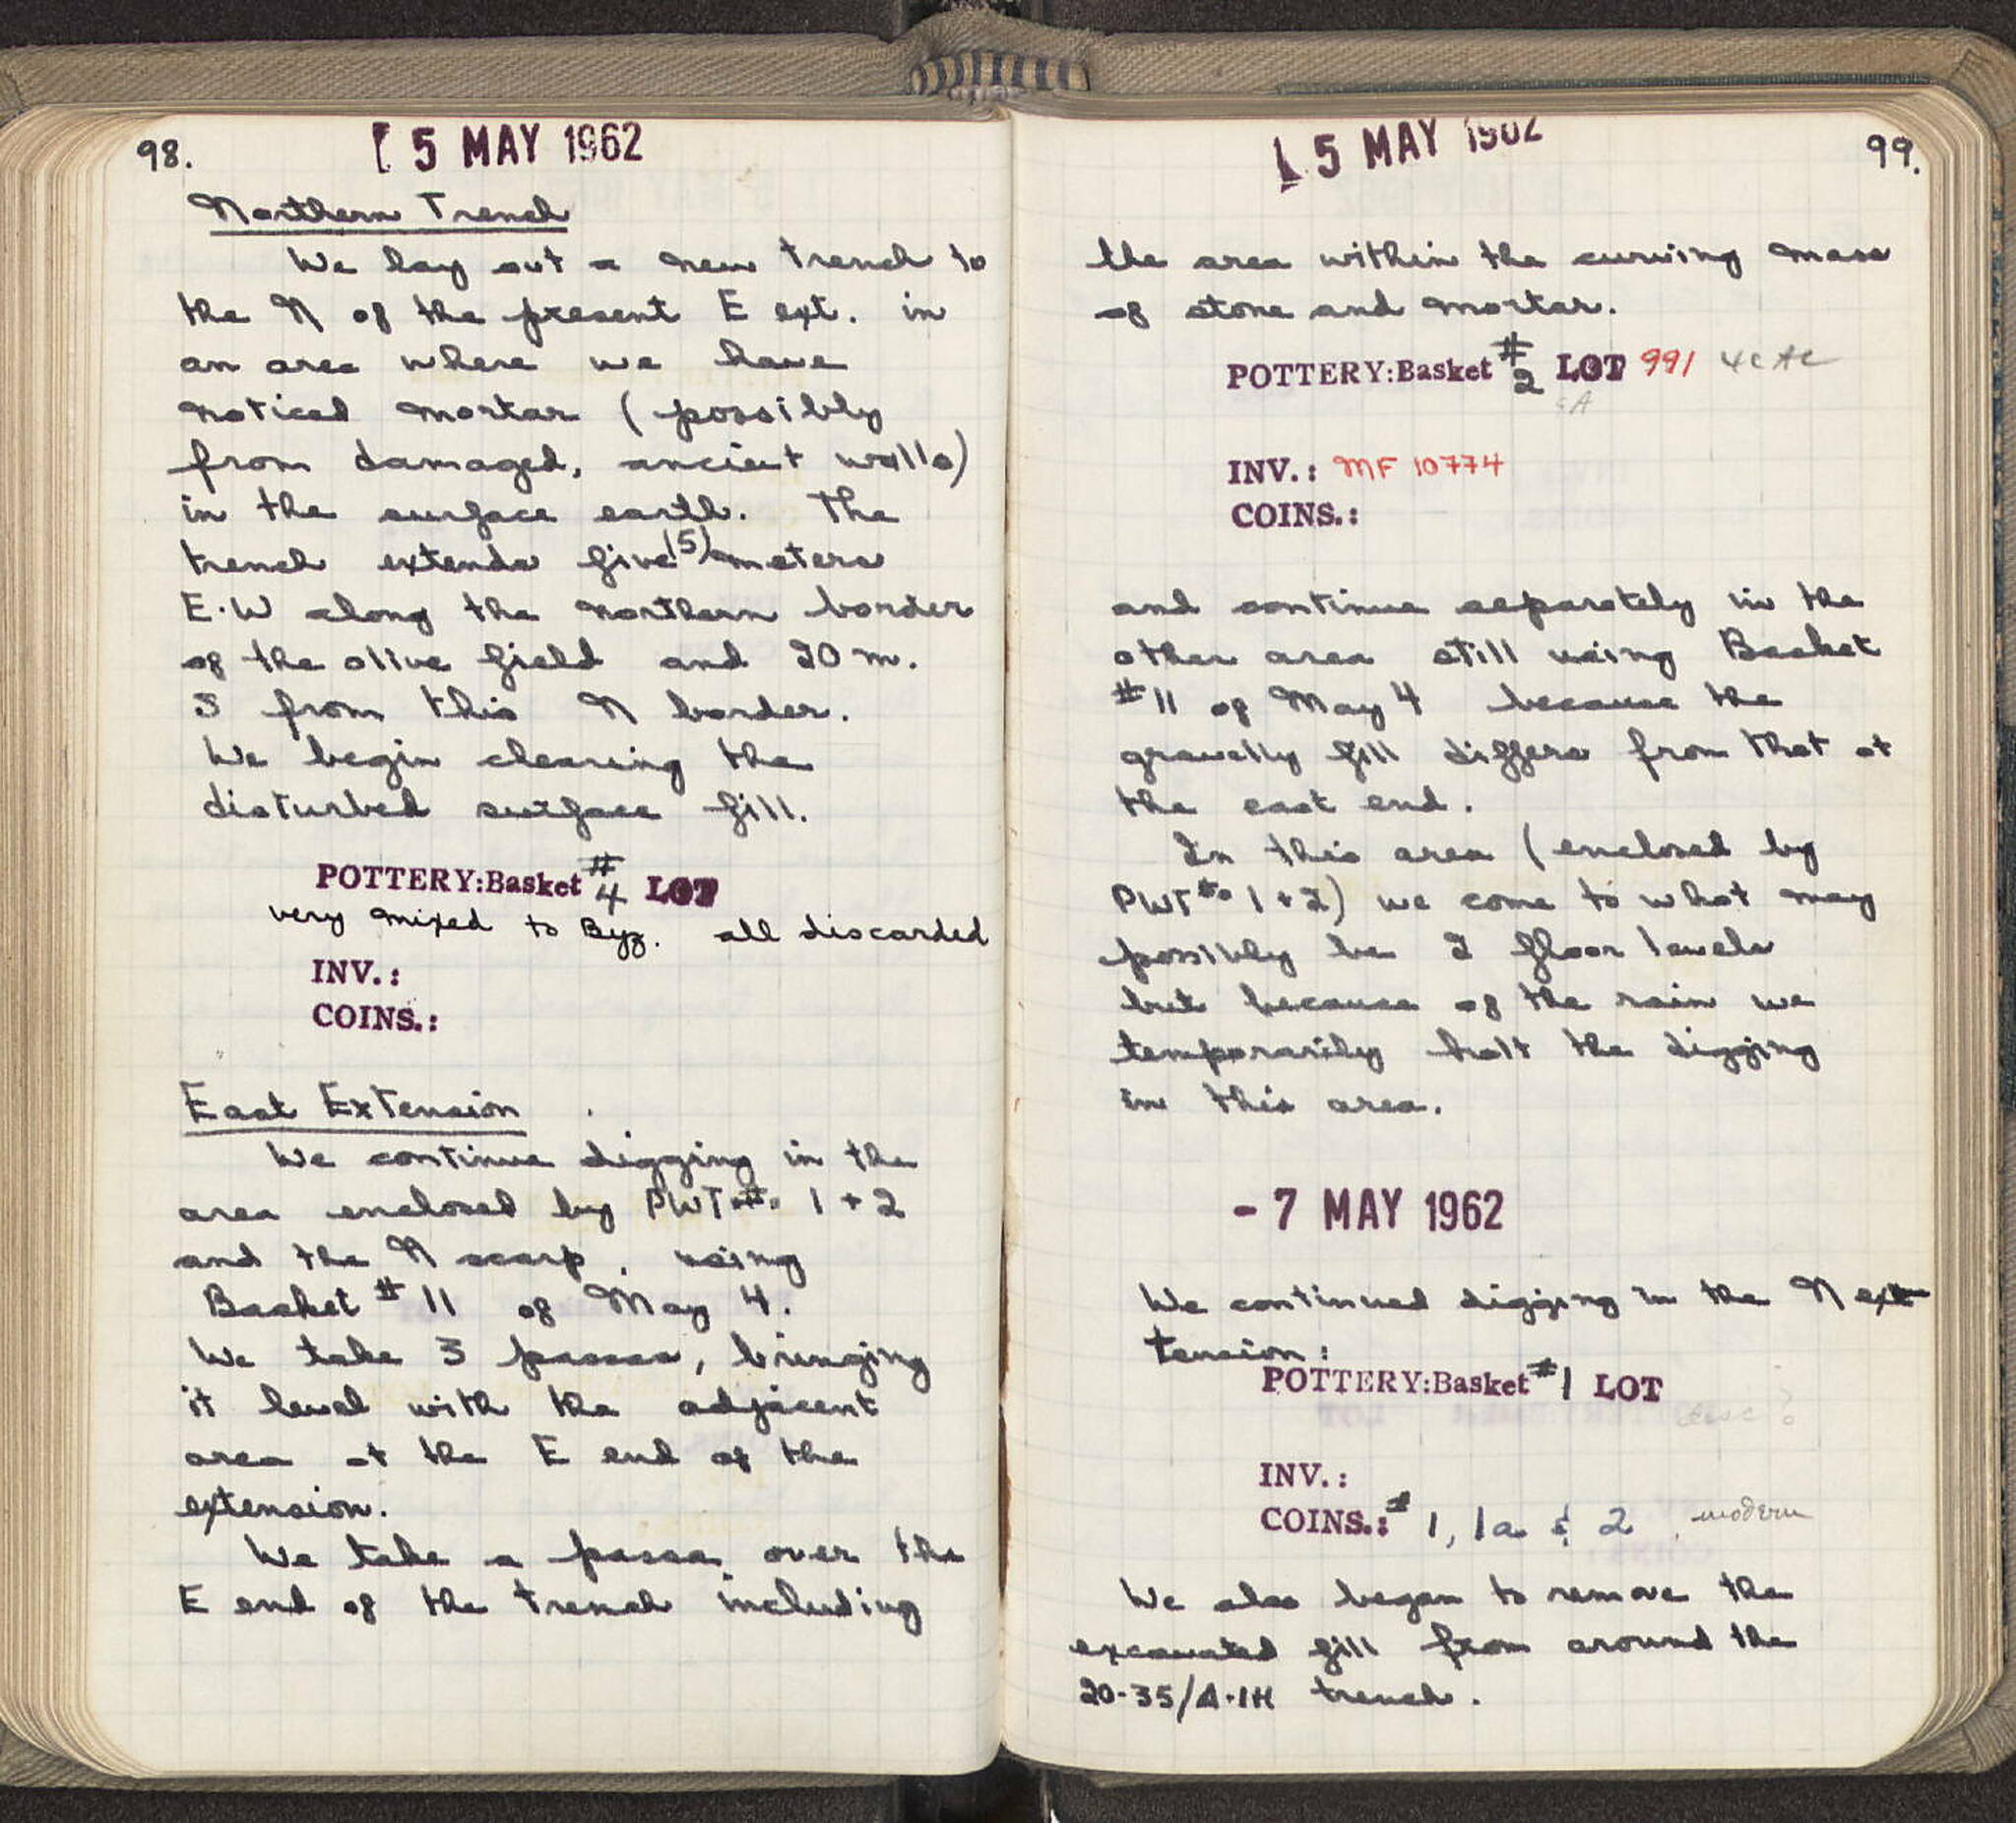 98.
5 MAY 1962
Northern Trench
We lay out a new trench to
the N of the present E ext. in
an area where we have
noticed mortar (possibly
from damaged, ancient walls)
in the surface earth. The
trench extends five (5) meters
E-W along the northern border
of the olive field and 20 m.
S from this N border.
We begin clearing the
disturbed surface fill.
POTTERY:Basket #4 LOT
very mixed to Byz. all discarded
INV.:
COINS.:
East Extension
We continue digging in the
area enclosed by PWT #s 1 + 2
and the N scarp, using
Basket #11 of May 4.
We take 3 passes, bringing
it level with the adjacent
area at the E end of the
extension.
We take a pass over the
E end of the trench including
5 MAY 1962
99.
the area within the curving mass
of stone and mortar.
POTTERY:Basket #2 LOT 991 4c AC
INV.: MF 10774
COINS.:
and continue separately in the
other area still using Basket
#11 of May 4 because the
gravelly fill differs from that at
the east end.
In this area (enclosed by
PWT #s 1 + 2) we come to what may
possibly be 2 floor levels
but because of the rain we
temporarily halt the digging
in this area.
- 7 MAY 1962
We continued digging in the N ex
tension:
POTTERY:Basket #1 LOT
disc?
INV.:
COINS.: # 1, 1a & 2 modern
We also began to remove the
excavated fill from around the
20-35/A-1H trench.